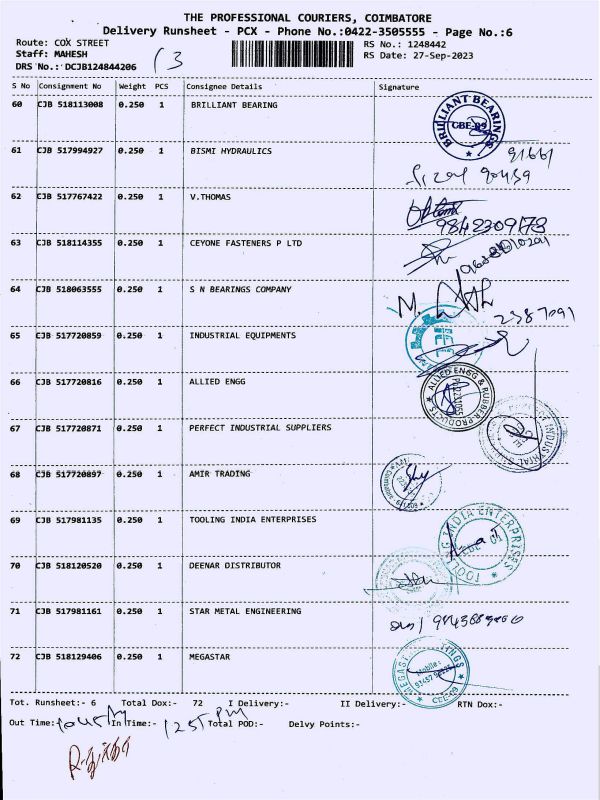 THE PROFESSIONAL COURIERS, COIMBATORE
Delivery Runsheet - PCX - Phone No.:0422-3505555 - Page No.:6
Route: COX STREET
RS No.: 1248442
Staff: MAHESH
RS Date: 27-Sep-2023
DRS No.: DCJB124844206
13
S No Consignment No Weight PCS Consignee Details Signature
60 CJB 518113008 0.250 1 BRILLIANT BEARING
BRILLIANT BEARINGS
CBE-09
61 CJB 517994927 0.250 1 BISMI HYDRAULICS
62 CJB 517767422 0.250 1 V.THOMAS
9842309178
63 CJB 518114355 0.250 1 CEYONE FASTENERS P LTD
64 CJB 518063555 0.250 1 S N BEARINGS COMPANY
2387091
65 CJB 517720859 0.250 1 INDUSTRIAL EQUIPMENTS
66 CJB 517720816 0.250 1 ALLIED ENGG
ALLIED ENGG & RUBBER PRODUCTS
67 CJB 517720871 0.250 1 PERFECT INDUSTRIAL SUPPLIERS
68 CJB 517720897 0.250 1 AMIR TRADING
69 CJB 517981135 0.250 1 TOOLING INDIA ENTERPRISES
TOOLING INDIA ENTERPRISES
70 CJB 518120520 0.250 1 DEENAR DISTRIBUTOR
71 CJB 517981161 0.250 1 STAR METAL ENGINEERING
72 CJB 518129406 0.250 1 MEGASTAR
Mobile:
CBE-09
Tot. Runsheet:- 6 Total Dox:- 72 I Delivery:- II Delivery:- RTN Dox:-
Out Time: In Time:- 125 PM Total POD:- Delvy Points:-